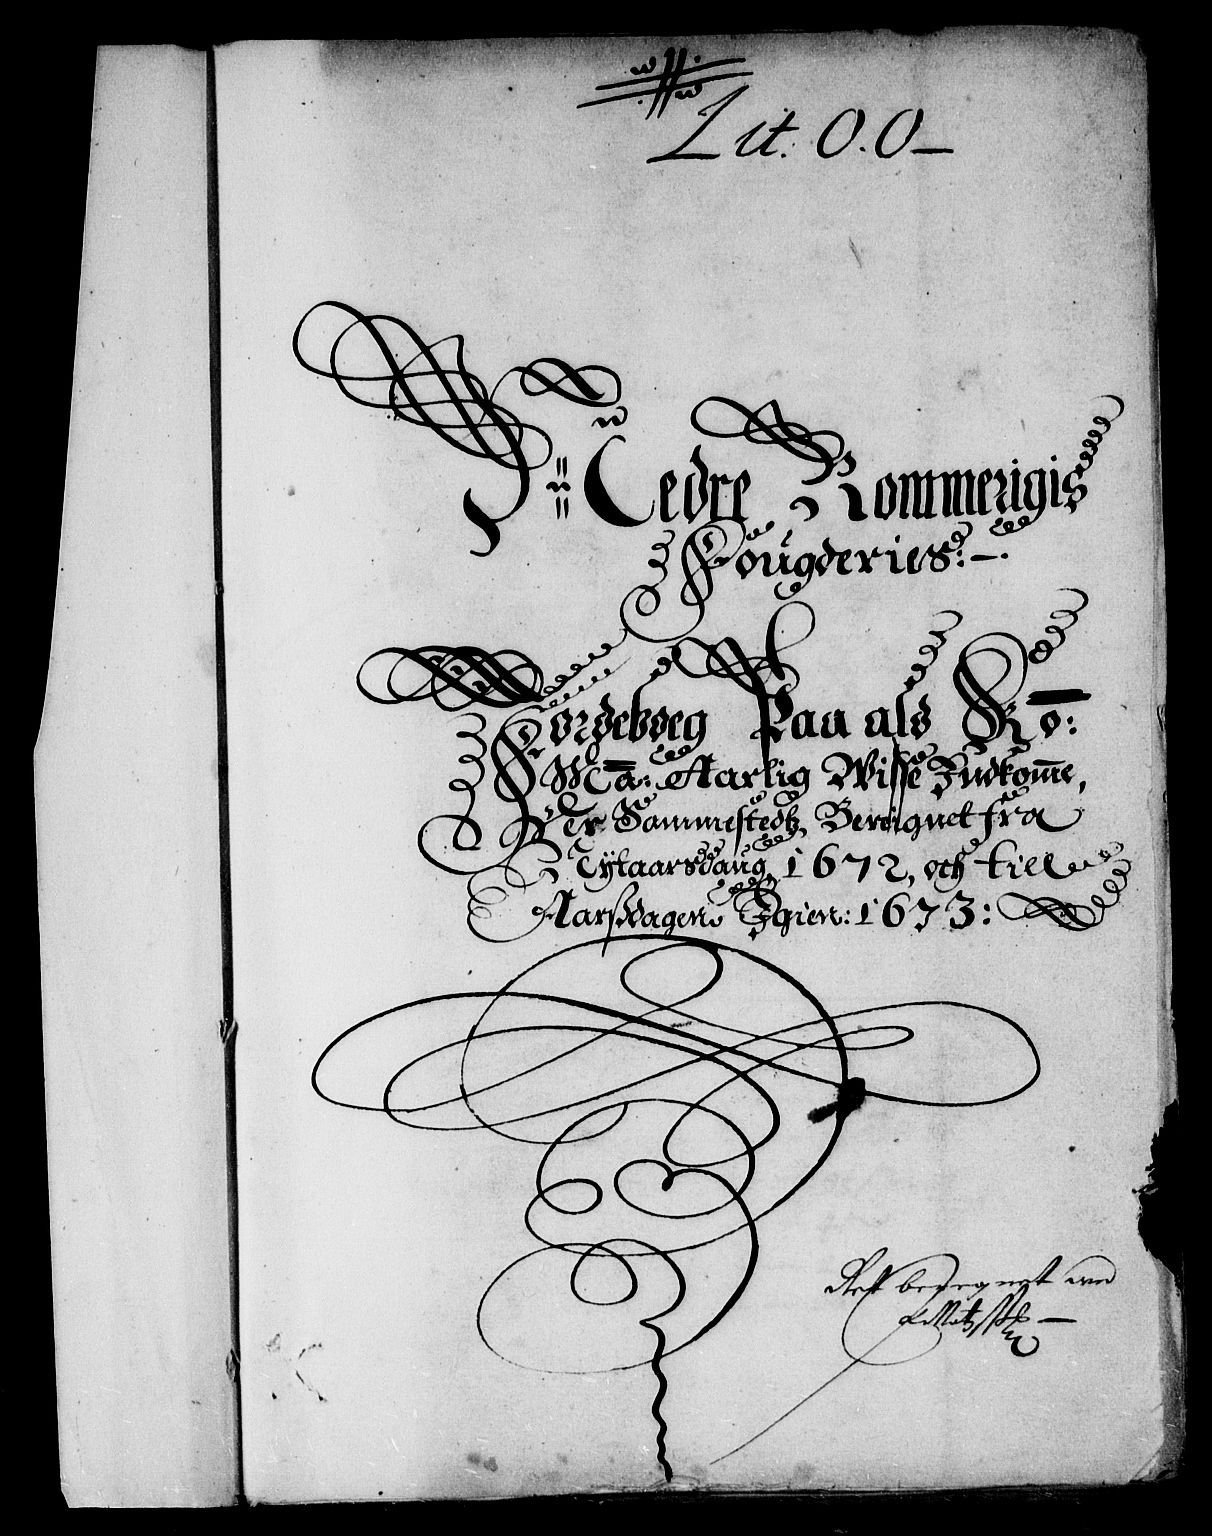 Lit: O.O
Nedre Rommerigis
Fougderies:
Jordeboeg Paa als Ko:
Ma: Aarlig Wisse Indkome,
Der Sammestedtz, Bereignet fra
Nÿtaarsdaug, 1672, och till
Aarssdagen Igien: 1673: